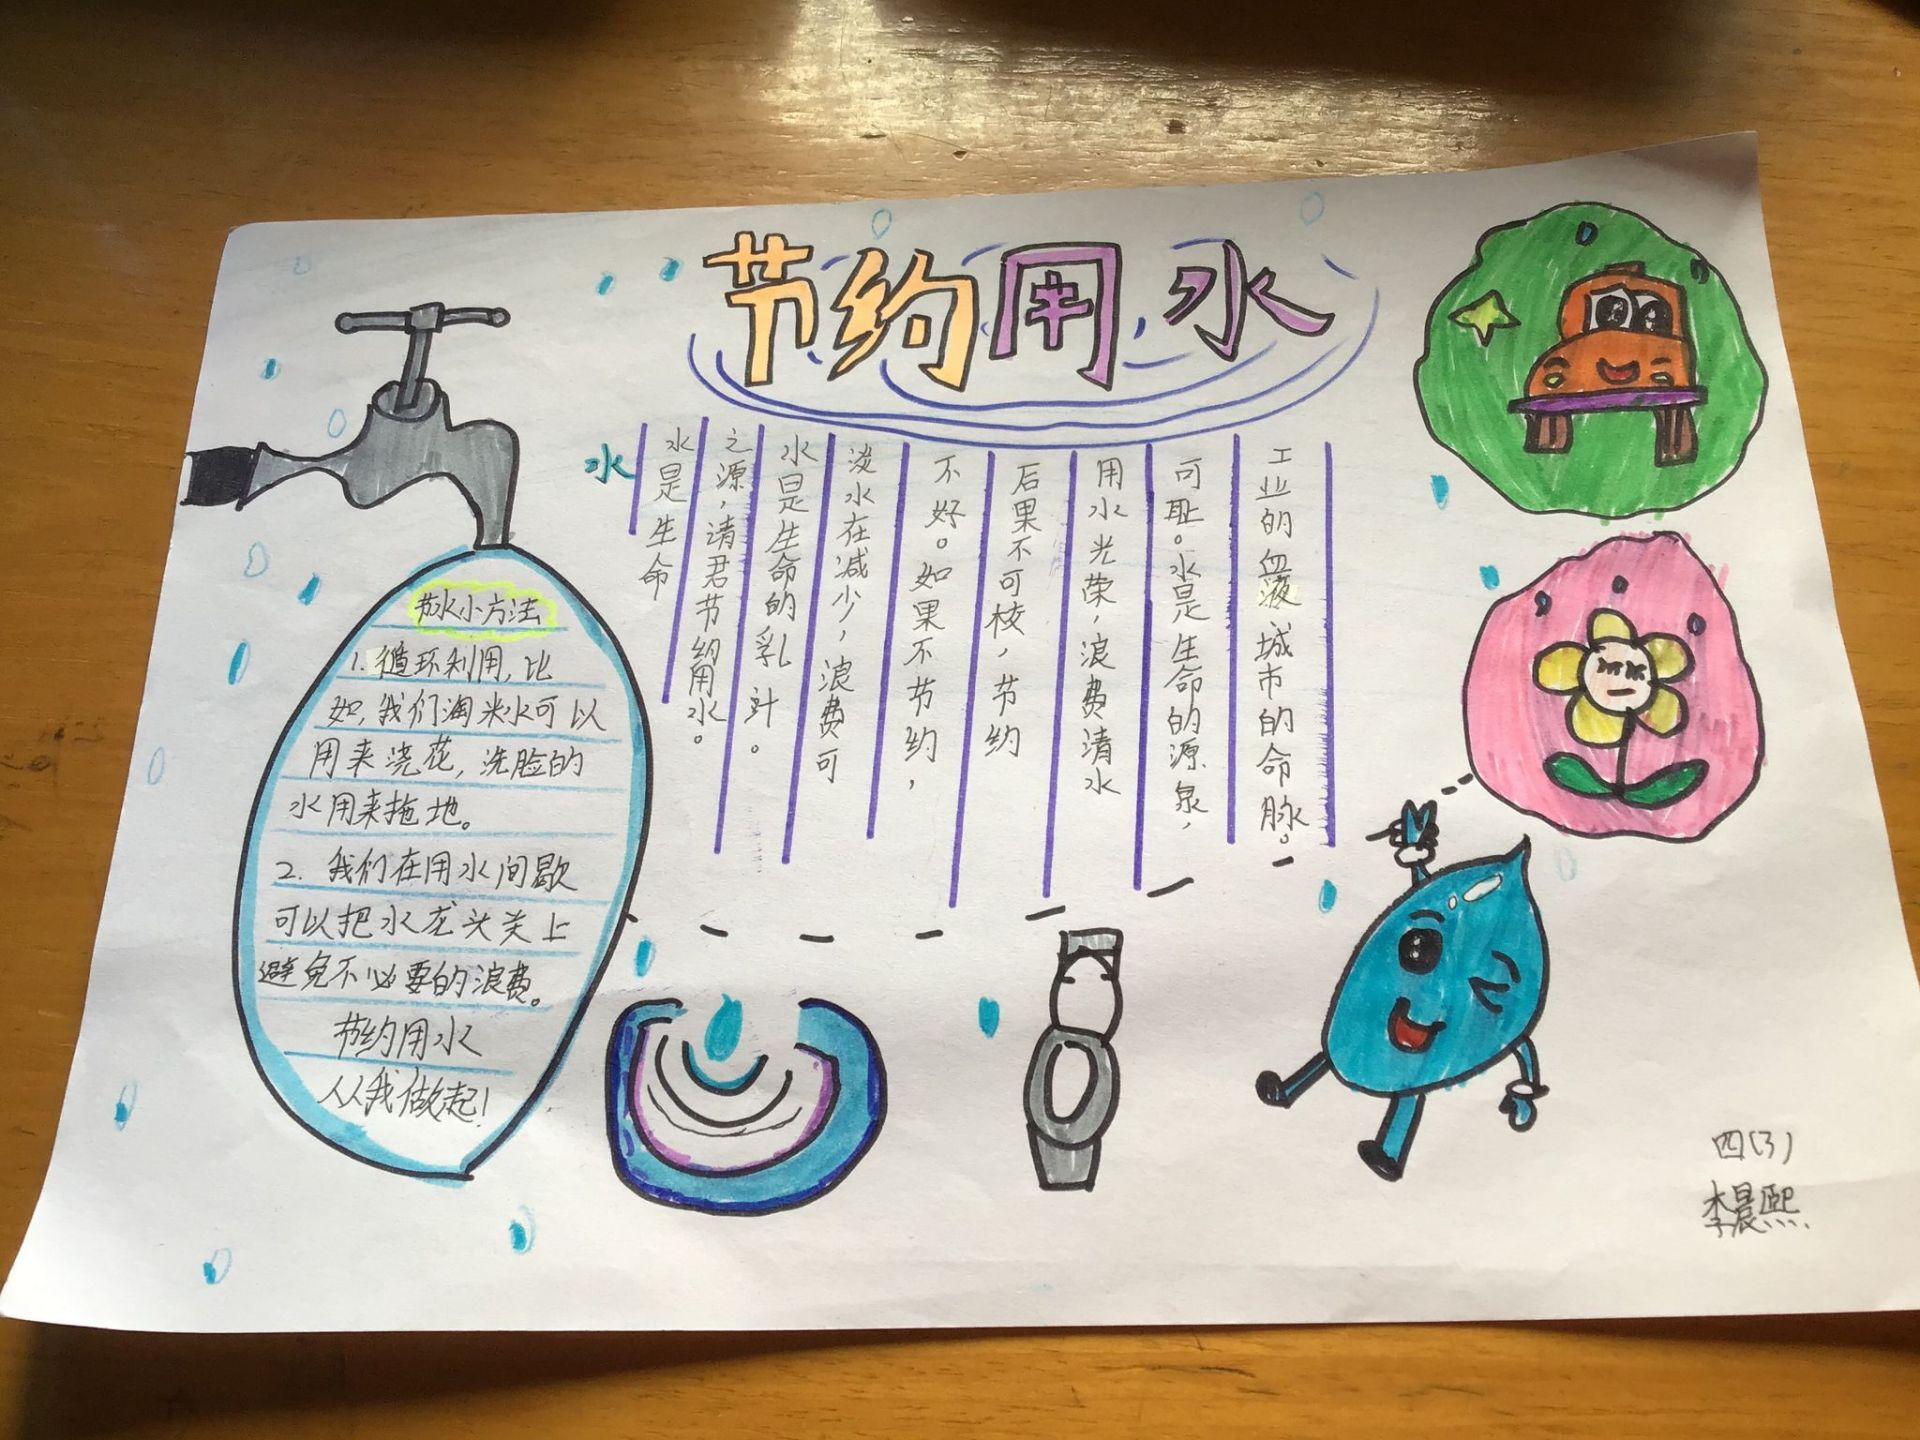 节约用水
节水小方法
1. 循环利用，比
如，我们淘米水可以
用来浇花，洗脸的
水用来拖地。
2. 我们在用水间歇
可以把水龙头关上
避免不必要的浪费。
节约用水
从我做起！
水
水是生命
之源，请君节约用水。
水是生命的乳汁。
淡水在减少，浪费可
不好。如果不节约，
后果不可核，节约
用水光荣，浪费清水
可耻。水是生命的源泉，
工业的血液，城市的命脉。
四(3)
李晨熙